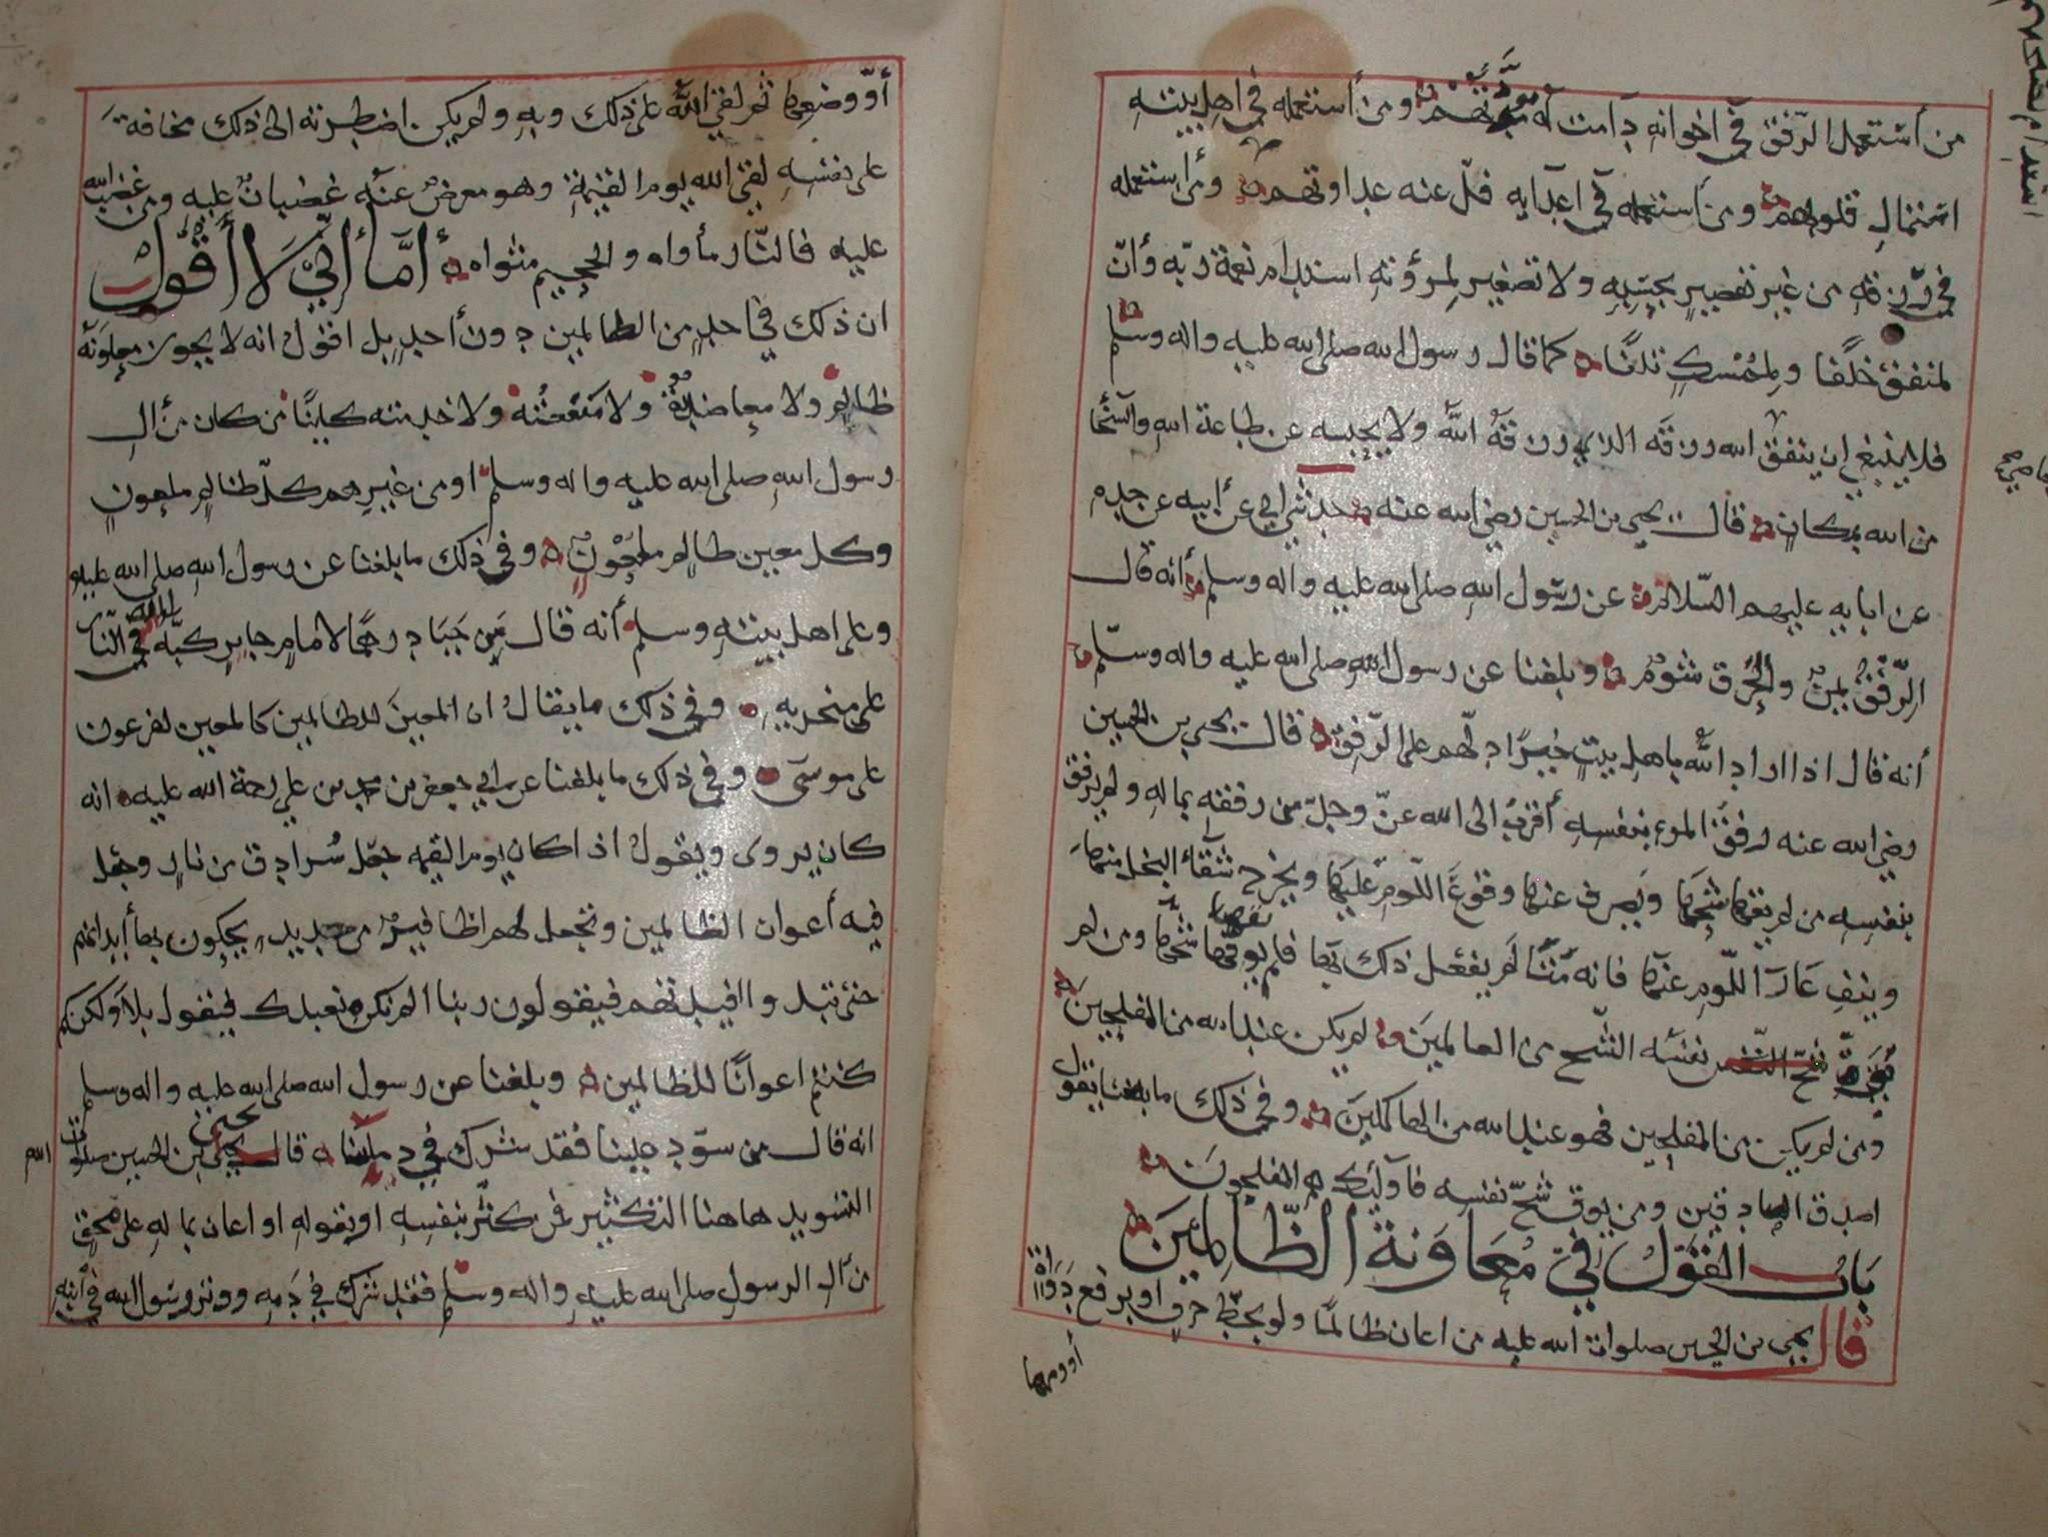 من أستعمل الرّفق في اخوانه دامت له مودّتهم ومن أستعمله في اهل بيته
استمال قلوبهم ومن أستعمله في اعدآيه فلّ عنه عداوتهم ومن استعمله
في رزقه من غير تقصير بحسبه ولا تصغير لمرؤته استدام نعمة ربه وأنّ
لمنفق خلفا ولممسك تلفا كما قال رسول الله صلى الله عليه واله وسلم
فلا ينبغي ان ينفق الله رزقه الذي رزقه الله ولا يحبسه عن طاعة الله
من الله بمكان قال يحيى بن الحسين رضي الله عنه حدثني ابي عن أبيه عن جده
عن ابايه عليهم السّلام عن رسول الله صلى الله عليه واله وسلم أنه قال
الرّفق يمن والخرق شوم وبلغنا عن رسول الله صلى الله عليه واله وسلّم
أنه قال اذا اراد الله باهل بيت خيرًا دلّهم على الرّفق قال يحيى بن الحسين
رضي الله عنه رفق المرء بنفسه أقرب الى الله عزّ وجلّ من رفقه بماله ولم يرفق
بنفسه من لم يقها شحها ويصرف عنها وقوع اللّوم عليها ويخرج شقآء البخل منها
وينفِ عَارَ اللّوم عنها فانه من لم يفعل ذلك بها فلم يوقها شحّها ومن لم
نفسه الشّح من العالمين لم يكن عند الله من المفلحين
ومن لم يكن من المفلحين فهو عند الله من الهالكين وفي ذلك ما يقول
اصدق الصادقين ومن يوق شحّ نفسه فاولئك هم المفلحون
باب القول في معاونة الظالمين
قال يحيى بن الحسين صلوات الله عليه من اعان ظالمًا ولو بخطّ حرف او برفع دواة
أو ومنها
أو وضعها ثم لقي الله على ذلك وبه ولم يكن اضطرته الى ذلك مخافة
على نفسه لقي الله يوم القيمة وهو معرض عنه غضبان عليه ومن غضب الله
عليه فالنّار مأواه والجحيم مثواه أمَّا إنّي لا أقول
ان ذلك في احد من الظالمين دون أحد بل اقول انه لا يجوز معاونة
ظالم ولا معاضدته ولا منفعته ولا خدمته كاينًا من كان من أل
رسول الله صلى الله عليه واله وسلم او من غيرهم كلّ ظالم ملعون
وكل معين ظالم ملعون وفي ذلك ما بلغنا عن رسول الله صلى الله عليه
وعلى اهل بيته وسلم أنه قال من جبا درهمًا لامام جاير كبّه الله في النّار
على منخريه وفي ذلك ما يقال ان المعين للظالمين كالمعين لفرعون
على موسى وفي ذلك ما بلغنا عن ابي جعفر بن محمد بن علي رحمة الله عليه انه
كان يروى ويقول اذا كان يوم القيمه جعل سُرادق من نار وجعل
فيه أعوان الظالمين وتجعل لهم اظافير من حديد يحكون بها أبدانهم
حتى تبد وا افيدتهم فيقولون ربنا الم نكن نعبدك فيقول بلا ولكنكم
كنتم اعوانًا للظالمين وبلغنا عن رسول الله صلى الله عليه واله وسلم
انه قال من سوّد علينا فقد شرك في دمائنا قال يحيى بن الحسين صلوات الله
التسويد هاهنا التكثير فمن كثّر بنفسه او بقوله او اعان بماله على محق
من أل الرسول صلى الله عليه واله وسلم فقد شرك في دمه ووتر رسول الله في أبنه